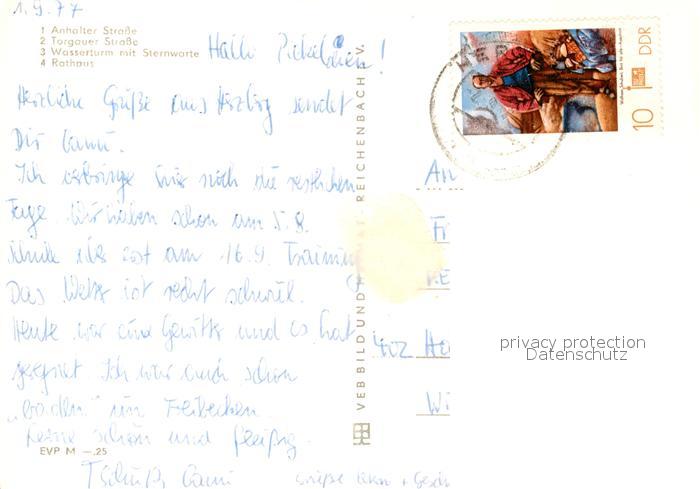 1.9.77
1 Anhalter Straße
2 Torgauer Straße
3 Wasserturm mit Sternwarte
4 Rathaus
Hallo Pickelchen!
Herzliche Grüße aus Herzberg sendet
Dir
Ich verbringe hier noch die restlichen
Tage. Wir haben schon am 5.9.
Schule, also erst am 16.9. Training
Das Wetter ist recht schwül.
Heute war ein Gewitter und es hat
geregnet. Ich war auch schon
„baden“ im Freibecken.
Lerne schön und fleißig.
Tschüß,
Grüße
EVP M —.25
VEB BILD UND REICHENBACH V.
DDR
10
An
402 Ha
Wi
privacy protection
Datenschutz